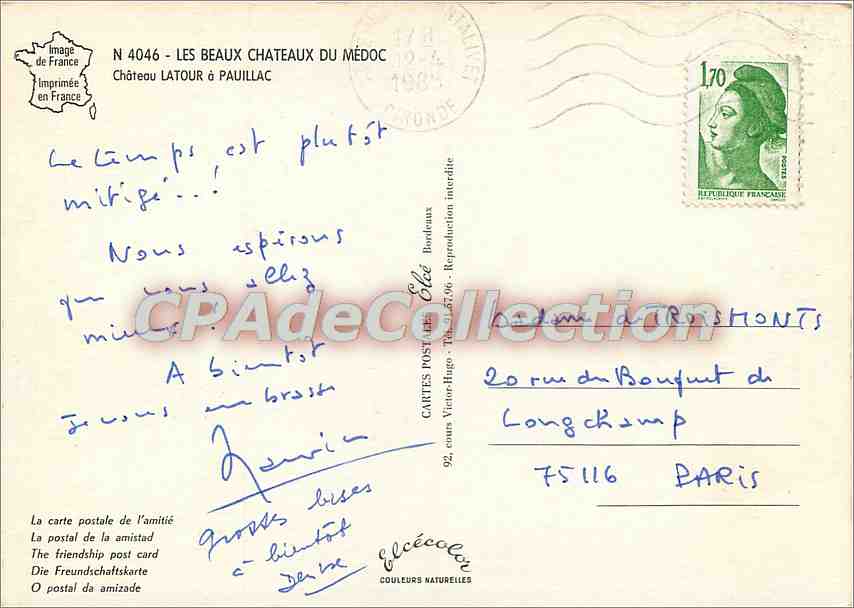 Image
de France
Imprimée
en France
N 4046 - LES BEAUX CHATEAUX DU MÉDOC
Château LATOUR à PAUILLAC
GIRONDE
1,70
POSTES
REPUBLIQUE FRANÇAISE
Le temps est plutôt
mitigé...!
Nous espérons
que vous allez
mieux.
A bientôt
Je vous embrasse
grosses bises
à bientôt
Denise
CPAdeCollection.com
Madame de TROISMONTS
20 rue du Bouquet de
Longchamp
75116 PARIS
CARTES POSTALES Elcé Bordeaux
92, cours Victor-Hugo - Tél. 91.57.96 - Reproduction interdite
La carte postale de l'amitié
La postal de la amistad
The friendship post card
Die Freundschaftskarte
O postal da amizade
Elcécolor
COULEURS NATURELLES